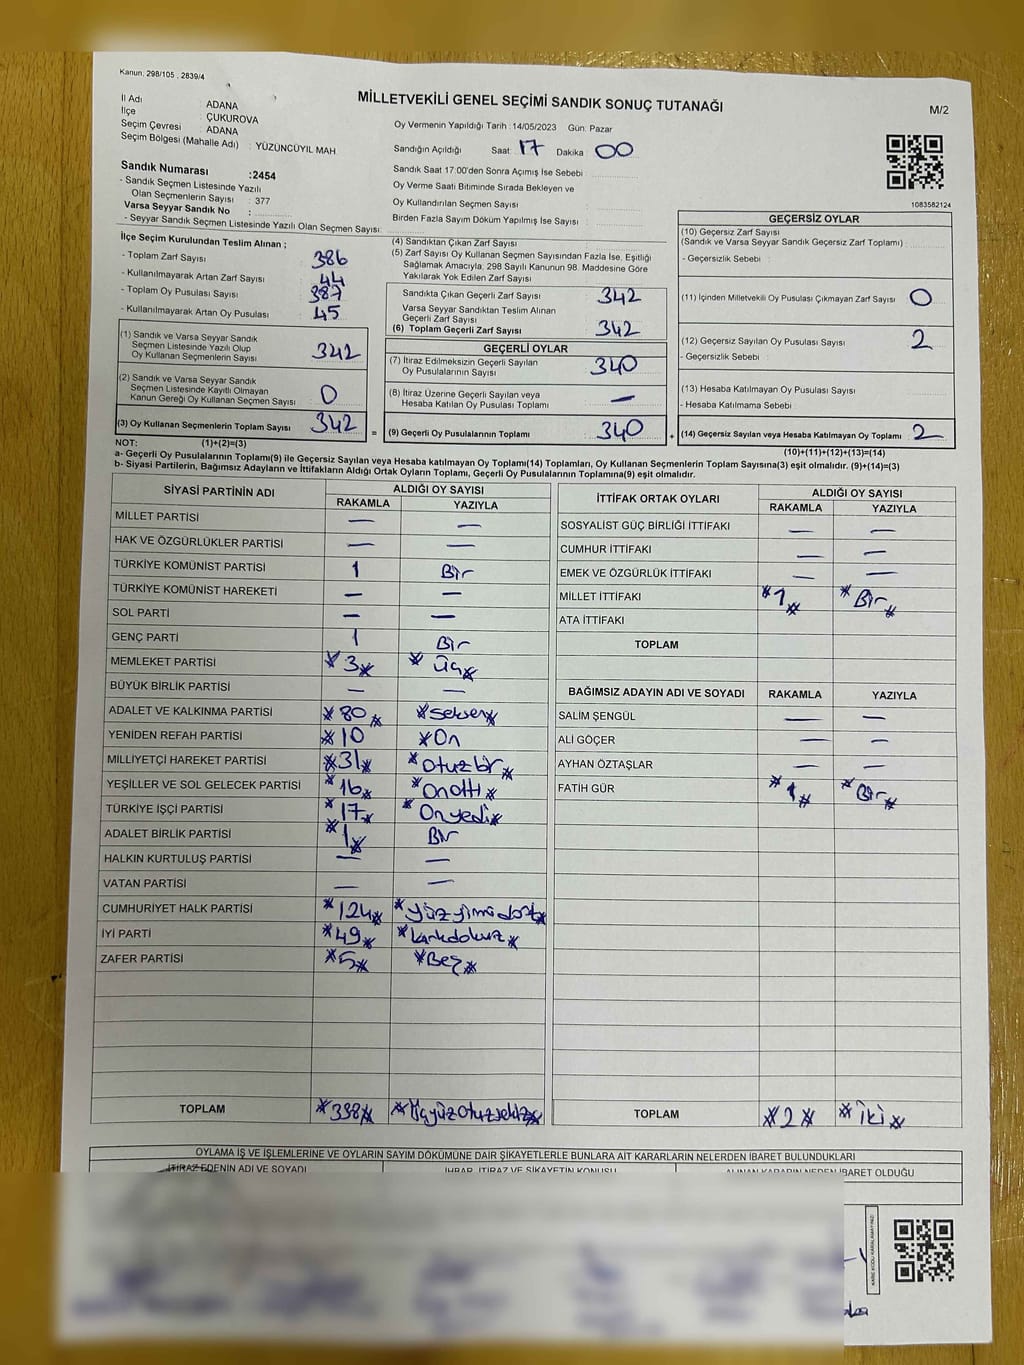 Kanun, 298/105 , 2839/4
MİLLETVEKİLİ GENEL SEÇİMİ SANDIK SONUÇ TUTANAĞI
M/2
İl Adı ADANA
İlçe : ÇUKUROVA
Seçim Çevresi : ADANA
Seçim Bölgesi (Mahalle Adı) : YÜZÜNCÜYIL MAH
Oy Vermenin Yapıldığı Tarih : 14/05/2023 Gün: Pazar
Sandığın Açıldığı Saat : 17 Dakika 00
Sandık Saat 17:00'den Sonra Açımış İse Sebebi :
Oy Verme Saati Bitiminde Sırada Bekleyen ve
Oy Kullandırılan Seçmen Sayısı :
Birden Fazla Sayım Döküm Yapılmış İse Sayısı :
1083582124
Sandık Numarası :2454
- Sandık Seçmen Listesinde Yazılı
Olan Seçmenlerin Sayısı : 377
Varsa Seyyar Sandık No :
- Seyyar Sandık Seçmen Listesinde Yazılı Olan Seçmen Sayısı:
İlçe Seçim Kurulundan Teslim Alınan ;
- Toplam Zarf Sayısı 386
- Kullanılmayarak Artan Zarf Sayısı 44
- Toplam Oy Pusulası Sayısı 387
- Kullanılmayarak Artan Oy Pusulası 45
(1) Sandık ve Varsa Seyyar Sandık
Seçmen Listesinde Yazılı Olup
Oy Kullanan Seçmenlerin Sayısı 342
(2) Sandık ve Varsa Seyyar Sandık
Seçmen Listesinde Kayıtlı Olmayan
Kanun Gereği Oy Kullanan Seçmen Sayısı 0
(3) Oy Kullanan Seçmenlerin Toplam Sayısı 342 =
(4) Sandıktan Çıkan Zarf Sayısı :
(5) Zarf Sayısı Oy Kullanan Seçmen Sayısından Fazla İse, Eşitliği
Sağlamak Amacıyla, 298 Sayılı Kanunun 98. Maddesine Göre
Yakılarak Yok Edilen Zarf Sayısı
Sandıkta Çıkan Geçerli Zarf Sayısı 342
Varsa Seyyar Sandıktan Teslim Alınan
Geçerli Zarf Sayısı
(6) Toplam Geçerli Zarf Sayısı 342
GEÇERLİ OYLAR
(7) İtiraz Edilmeksizin Geçerli Sayılan
Oy Pusulalarının Sayısı 340
(8) İtiraz Üzerine Geçerli Sayılan veya
Hesaba Katılan Oy Pusulası Toplamı —
(9) Geçerli Oy Pusulalarının Toplamı 340 +
GEÇERSİZ OYLAR
(10) Geçersiz Zarf Sayısı
(Sandık ve Varsa Seyyar Sandık Geçersiz Zarf Toplamı) :
- Geçersizlik Sebebi :
(11) İçinden Milletvekili Oy Pusulası Çıkmayan Zarf Sayısı 0
(12) Geçersiz Sayılan Oy Pusulası Sayısı 2
- Geçersizlik Sebebi :
(13) Hesaba Katılmayan Oy Pusulası Sayısı
- Hesaba Katılmama Sebebi :
(14) Geçersiz Sayılan veya Hesaba Katılmayan Oy Toplamı 2
NOT: (1)+(2)=(3)
(10)+(11)+(12)+(13)=(14)
a- Geçerli Oy Pusulalarının Toplamı(9) ile Geçersiz Sayılan veya Hesaba katılmayan Oy Toplamı(14) Toplamları, Oy Kullanan Seçmenlerin Toplam Sayısına(3) eşit olmalıdır. (9)+(14)=(3)
b- Siyasi Partilerin, Bağımsız Adayların ve İttifakların Aldığı Ortak Oyların Toplamı, Geçerli Oy Pusulalarının Toplamına(9) eşit olmalıdır.
SİYASİ PARTİNİN ADI ALDIĞI OY SAYISI
RAKAMLA YAZIYLA
MİLLET PARTİSİ — —
HAK VE ÖZGÜRLÜKLER PARTİSİ — —
TÜRKİYE KOMÜNİST PARTİSİ 1 Bir
TÜRKİYE KOMÜNİST HAREKETİ — —
SOL PARTİ — —
GENÇ PARTİ 1 Bir
MEMLEKET PARTİSİ *3* *Üç*
BÜYÜK BİRLİK PARTİSİ — —
ADALET VE KALKINMA PARTİSİ *80* *seksen*
YENİDEN REFAH PARTİSİ *10 *On
MİLLİYETÇİ HAREKET PARTİSİ *31* *otuzbir*
YEŞİLLER VE SOL GELECEK PARTİSİ *16* *Onaltı*
TÜRKİYE İŞÇİ PARTİSİ *17* *Onyedi*
ADALET BİRLİK PARTİSİ *1* Bir
HALKIN KURTULUŞ PARTİSİ — —
VATAN PARTİSİ — —
CUMHURİYET HALK PARTİSİ *124* *yüzyirmidört*
İYİ PARTİ *49* *kırkdokuz*
ZAFER PARTİSİ *5* *Beş*
TOPLAM *338* *Üçyüzotuzsekiz*
İTTİFAK ORTAK OYLARI ALDIĞI OY SAYISI
RAKAMLA YAZIYLA
SOSYALİST GÜÇ BİRLİĞİ İTTİFAKI — —
CUMHUR İTTİFAKI — —
EMEK VE ÖZGÜRLÜK İTTİFAKI — —
MİLLET İTTİFAKI *1* *Bir*
ATA İTTİFAKI
TOPLAM
BAĞIMSIZ ADAYIN ADI VE SOYADI RAKAMLA YAZIYLA
SALİM ŞENGÜL — —
ALİ GÖÇER — —
AYHAN ÖZTAŞLAR — —
FATİH GÜR *1* *Bir*
TOPLAM *2* *iki*
OYLAMA İŞ VE İŞLEMLERİNE VE OYLARIN SAYIM DÖKÜMÜNE DAİR ŞİKAYETLERLE BUNLARA AİT KARARLARIN NELERDEN İBARET BULUNDUKLARI
İTİRAZ EDENİN ADI VE SOYADI İHBAR, İTİRAZ VE ŞİKAYETİN KONUSU ALINAN KARARIN NEDEN İBARET OLDUĞU
KARE KODU KARALAMAYINIZ!